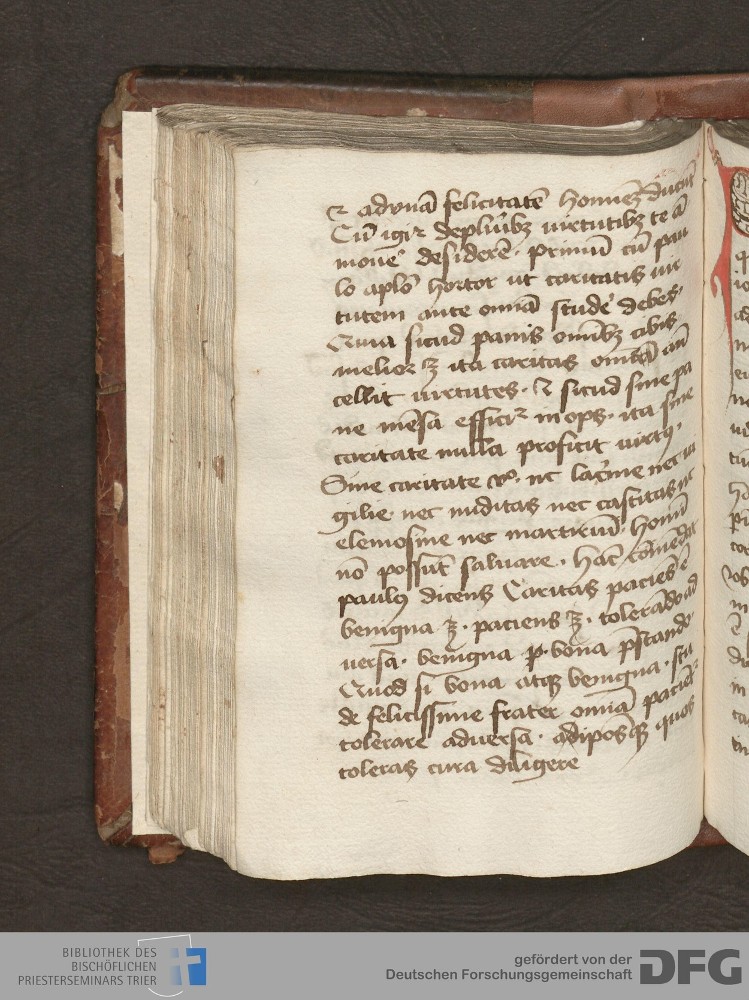 ⁊ ad vnā felicitatē hominēꝫ ducūt
Cū igiꝛ de pluribꝫ uirtutibꝫ te ā
mone᷑ desiderē · primū cū pau
lo aplō hortor ut caritatis uir
tutem ante omīa stude᷑ debes ·
Quia sicud panis omībꝫ cibis
melior ꝫ ita caritas omēs an
cellit uirtutes · ⁊ sicud sine pa
ne mēsa efficiꝛ inops · ita sine
caritate nulla proficit uirtꝰ ·
Sine caritate v° · nc lacrīme nec ui
gilie · nec nuditas nec castitas nc
elemosine nec martiriū homī
nō possūt saluare · Hāc cōmēdat
paulꝰ dicens Caritas paciēs ē
benigna ꝫ · paciens ꝫ · tolerādo ad
uersa · benigna ꝑ · bona p̄stando ·
Quod si bona atqꝫ benigna · stu
de felicissime frater omīa paciētꝛ
tolerare aduersa · adipos qꝫ quos
toleras cura diligere
BIBLIOTHEK DES
BISCHÖFLICHEN
PRIESTERSEMINARS TRIER
gefördert von der
Deutschen Forschungsgemeinschaft
DFG